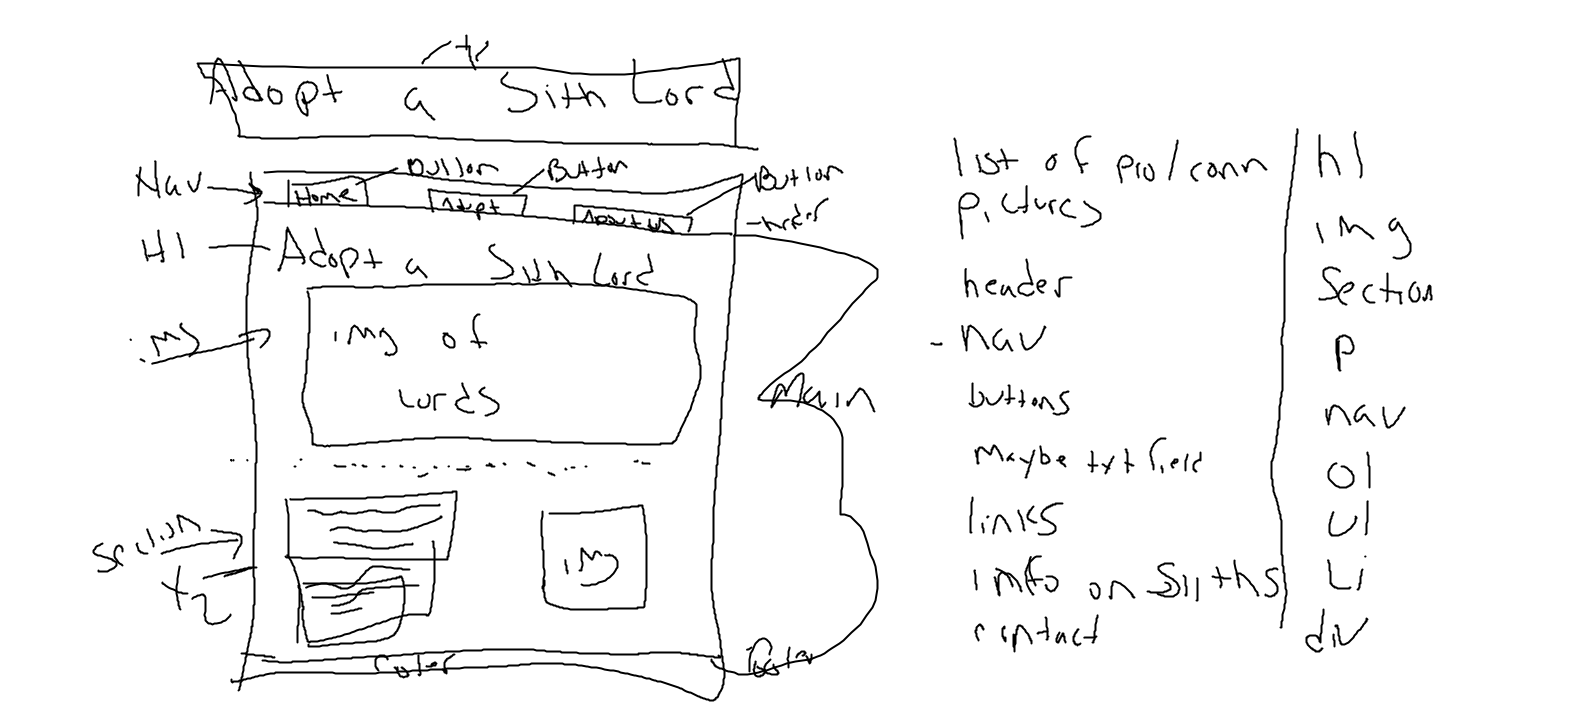 Adopt a Sith Lord
Nav
Button
Button
Button
Home
Adopt
About us
H1
Adopt a Sith Lord
img
img of
Lords
Main
Section
x2
img
Footer
list of pro/conn
pictures
header
- nav
buttons
Maybe txt field
links
info on Siths
contact
h1
img
Section
p
nav
ol
ul
Li
div